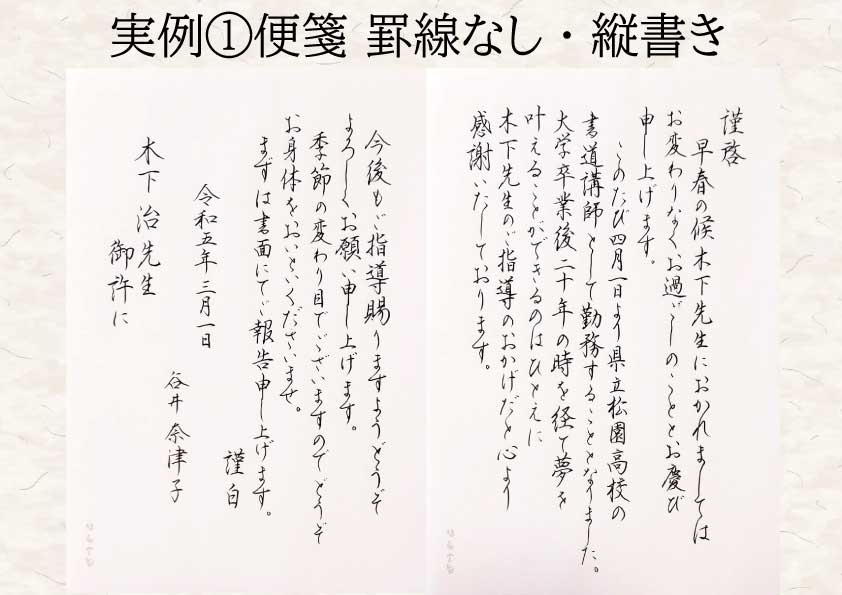 実例①便箋 罫線なし・縦書き
謹啓
早春の候木下先生におかれましては
お変わりなくお過ごしのこととお慶び
申し上げます。
このたび四月一日より県立松園高校の
書道講師として勤務することとなりました。
大学卒業後二十年の時を経て夢を
叶えることができるのはひとえに
木下先生のご指導のおかげだと心より
感謝いたしております。
今後もご指導賜りますようどうぞ
よろしくお願い申し上げます。
季節の変わり目でございますのでどうぞ
お身体をおいといくださいませ。
まずは書面にてご報告申し上げます。
謹白
令和五年三月一日
谷井奈津子
木下治先生
御許に